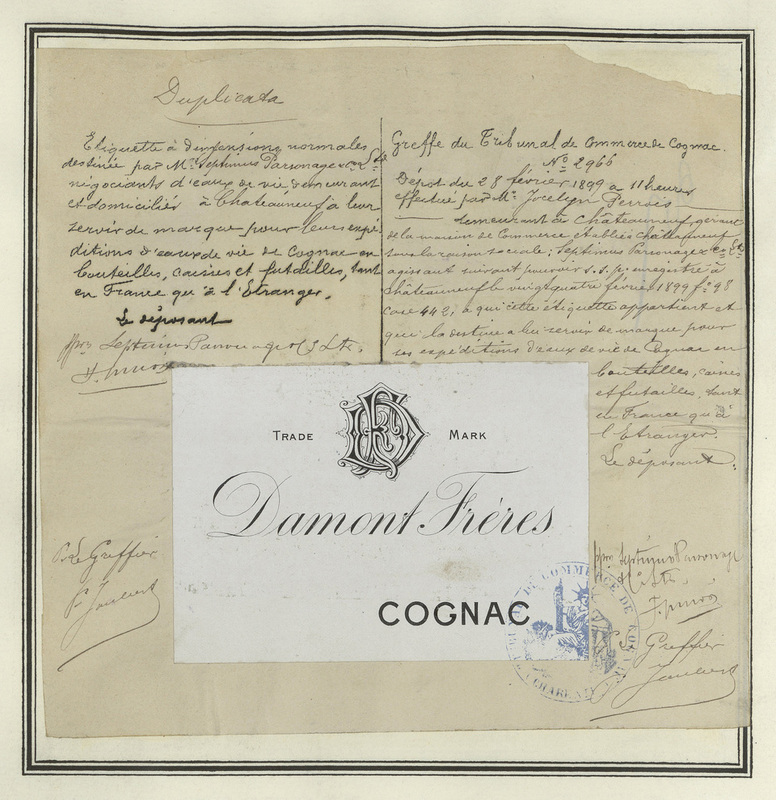 Duplicata
Etiquette à dimensions normales
destinée par Mr. Septimus Parsonage &
négociants d'eaux de vie demeurant
et domicilié à Chateauneuf à leur
servir de marque pour leurs expé
ditions d'eaux de vie de Cognac en
bouteilles, caisses et futailles, tant
en France qu'à l'Etranger.
Le déposant
ppon Septimus Parsonage
Greffe du Tribunal de Commerce de Cognac.
No 2966
Dépôt du 28 février 1899 à 11 heures
effectué par Mr. Jocelyn Perrois
demeurant à Chateauneuf, gérant
de la maison de Commerce établie à Chateauneuf
sous la raison sociale; Septimus Parsonage
agissant suivant pouvoir s.s.p. enregistré à
Châteauneuf le vingt quatre février 1899 fo 98
case 442, à qui cette étiquette appartient et
qui la destine à lui servir de marque pour
ses expéditions d'eaux de vie de Cognac en
bouteilles, caisses
et futailles, tant
en France qu'à
l'Etranger.
Le déposant.
TRADE MARK
Damont Fréres
COGNAC
Le Greffier
Joubert
ppon Septimus Parsonage
Greffier
Joubert